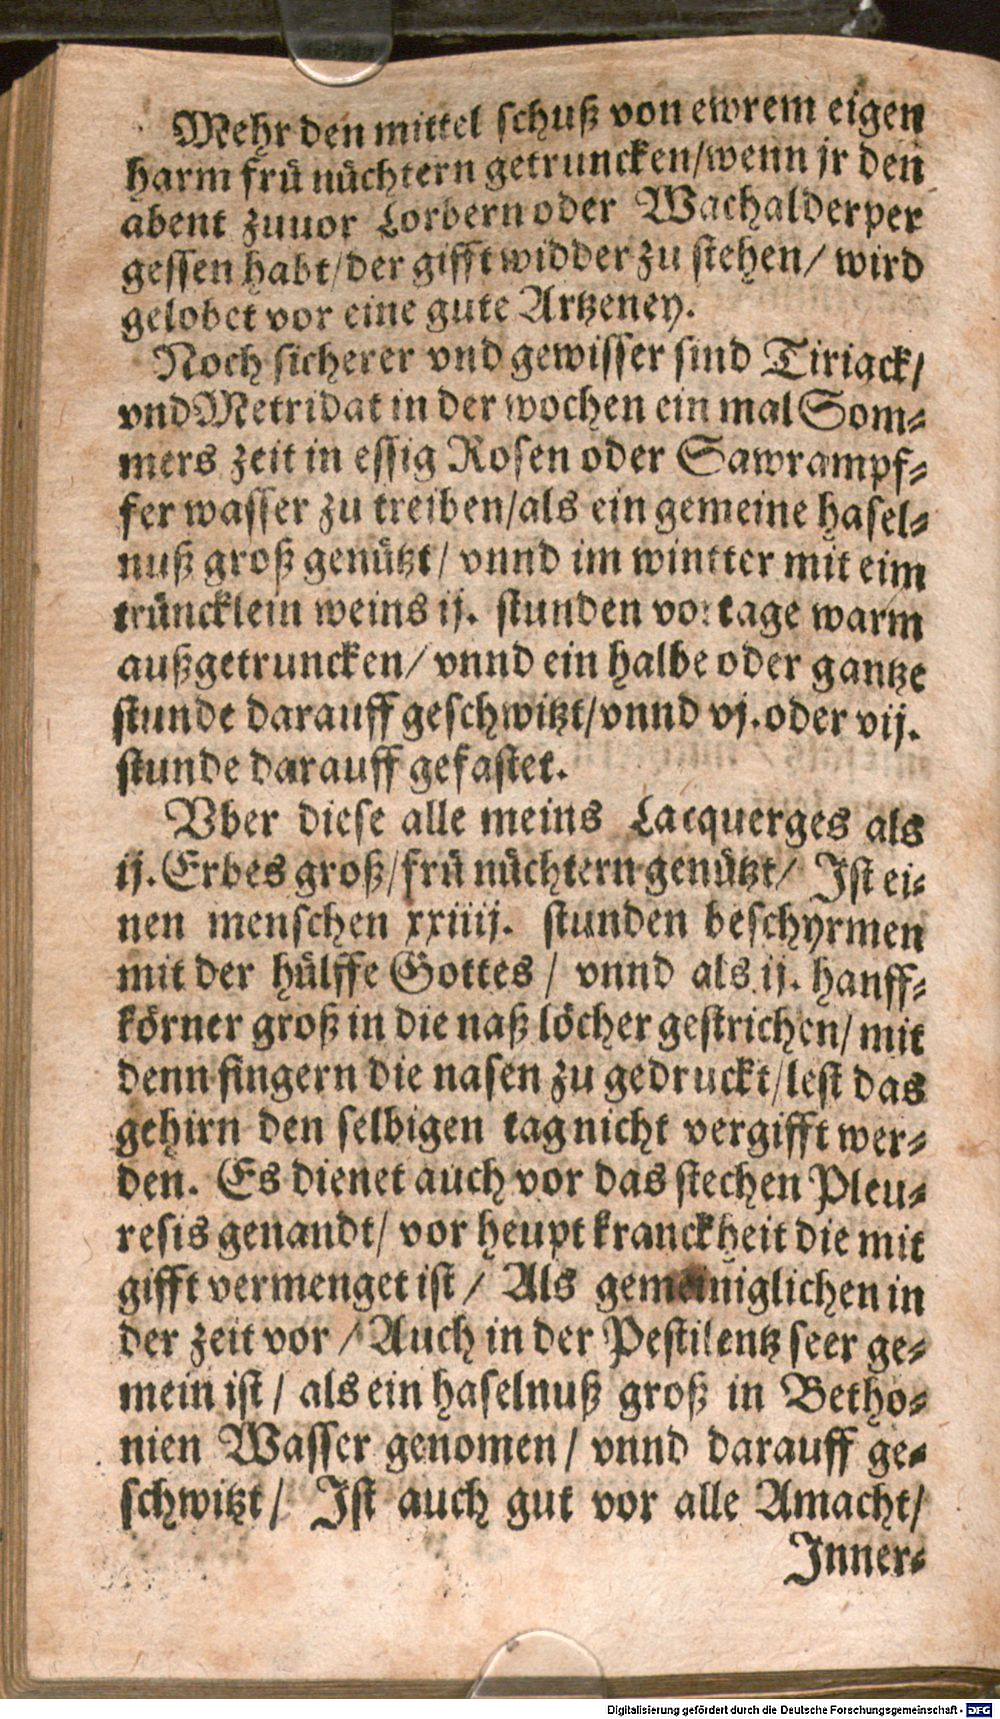 Mehr den mittel schuß von ewrem eigen
harm frü nüchtern getruncken/wenn jr den
abent zuuor Lorbern oder Wachalderper
gessen habt/der gifft widder zu stehen/ wird
gelobet vor eine gute Artzeney.
Noch sicherer vnd gewisser sind Tiriack/
vnd Metridat in der wochen ein mal Som⸗
mers zeit in essig Rosen oder Sawrampf⸗
fer wasser zu treiben/als ein gemeine hasel⸗
nuß groß genützt/ vnnd im wintter mit eim
trüncklein weins ij. stunden vor tage warm
außgetruncken/ vnnd ein halbe oder gantze
stunde darauff geschwitzt/vnnd vj. oder vij.
stunde darauff gefastet.
Vber diese alle meins Lacquerges als
ij. Erbes groß/frü nüchtern genützt/ Ist ei⸗
nen menschen xxiiij. stunden beschyrmen
mit der hülffe Gottes / vnnd als ij. hanff⸗
körner groß in die naß löcher gestrichen/ mit
denn fingern die nasen zu gedruckt/lest das
gehirn den selbigen tag nicht vergifft wer⸗
den. Es dienet auch vor das stechen Pleu⸗
resis genandt/ vor heupt kranckheit die mit
gifft vermenget ist / Als gemeiniglichen in
der zeit vor / Auch in der Pestilentz seer ge⸗
mein ist / als ein haselnuß groß in Betho⸗
nien Wasser genomen / vnnd darauff ge⸗
schwitzt / Ist auch gut vor alle Amacht/
Inner⸗
Digitalisierung gefördert durch die Deutsche Forschungsgemeinschaft - DFG